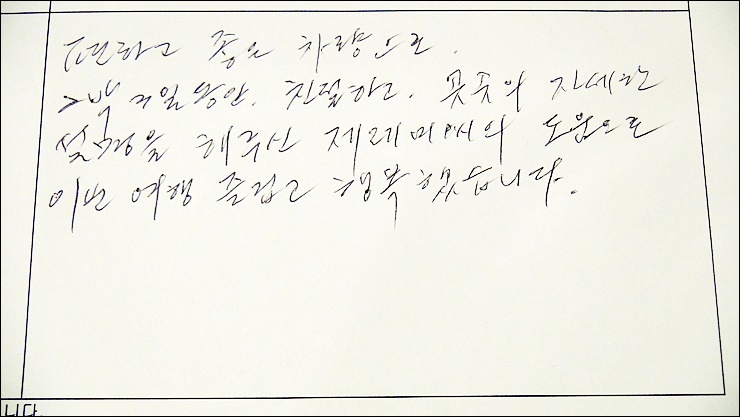 편하고 좋은 차량으로.
2박 3일 동안. 친절하고. 곳곳의 자세한
설명을 해주신 제레미씨의 도움으로
이번 여행 즐겁고 행복했습니다.
니다